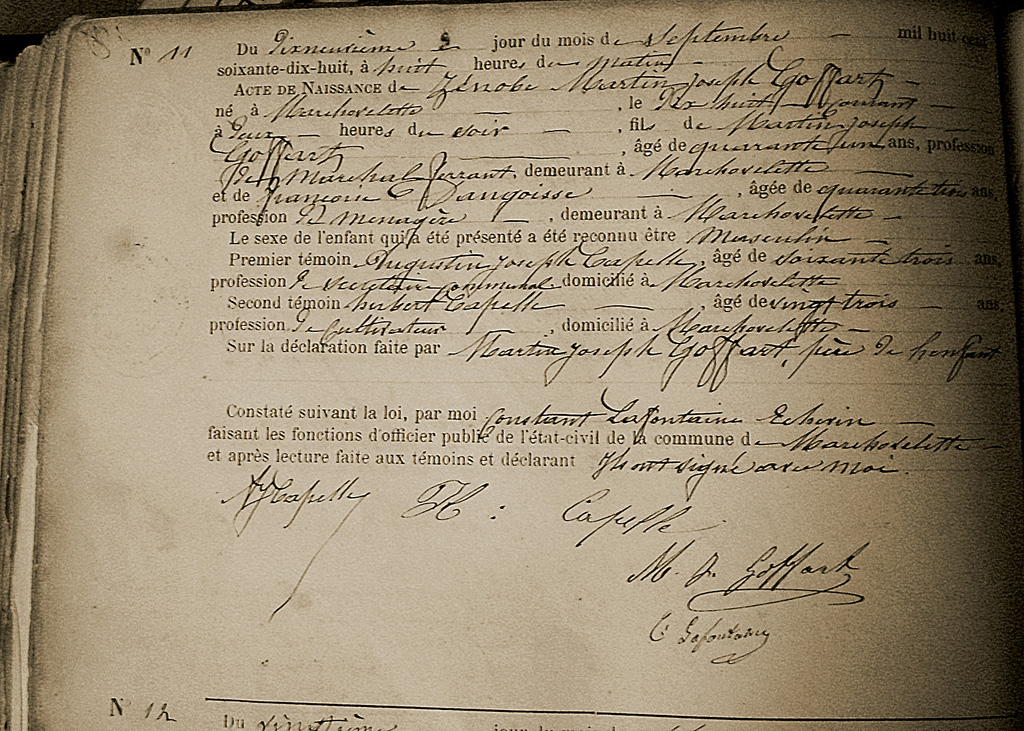 N° 11
Du Dixneuvième jour du mois de Septembre mil huit cent
soixante-dix-huit, à huit heures du matin
ACTE DE NAISSANCE de Zénobe Martin Joseph Goffart
né à Marchovelette, le Dix huit courant
à Deux heures du soir, fils de Martin Joseph
Goffart, âgé de quarante un ans, profession
de Marechal ferrant, demeurant à Marchovelette
et de françoise Dangoisse, âgée de quarante trois ans,
profession de menagère, demeurant à Marchovelette
Le sexe de l'enfant qui a été présenté a été reconnu être Masculin
Premier témoin Augustin Joseph Capelle, âgé de soixante trois ans,
profession de secrétaire communal domicilié à Marchovelette
Second témoin hubert Capelle, âgé de vingt trois ans,
profession de Cultivateur, domicilié à Marchovelette
Sur la déclaration faite par Martin Joseph Goffart, père de l'enfant
Constaté suivant la loi, par moi Constant Lafontaine Echevin
faisant les fonctions d'officier public de l'état-civil de la commune de Marchovelette
et après lecture faite aux témoins et déclarant Ils ont signé avec moi.
AJ Capelle H : Capelle
M. J. Goffart
C Lafontaine
N° 12
Du vingtième jour du mois de